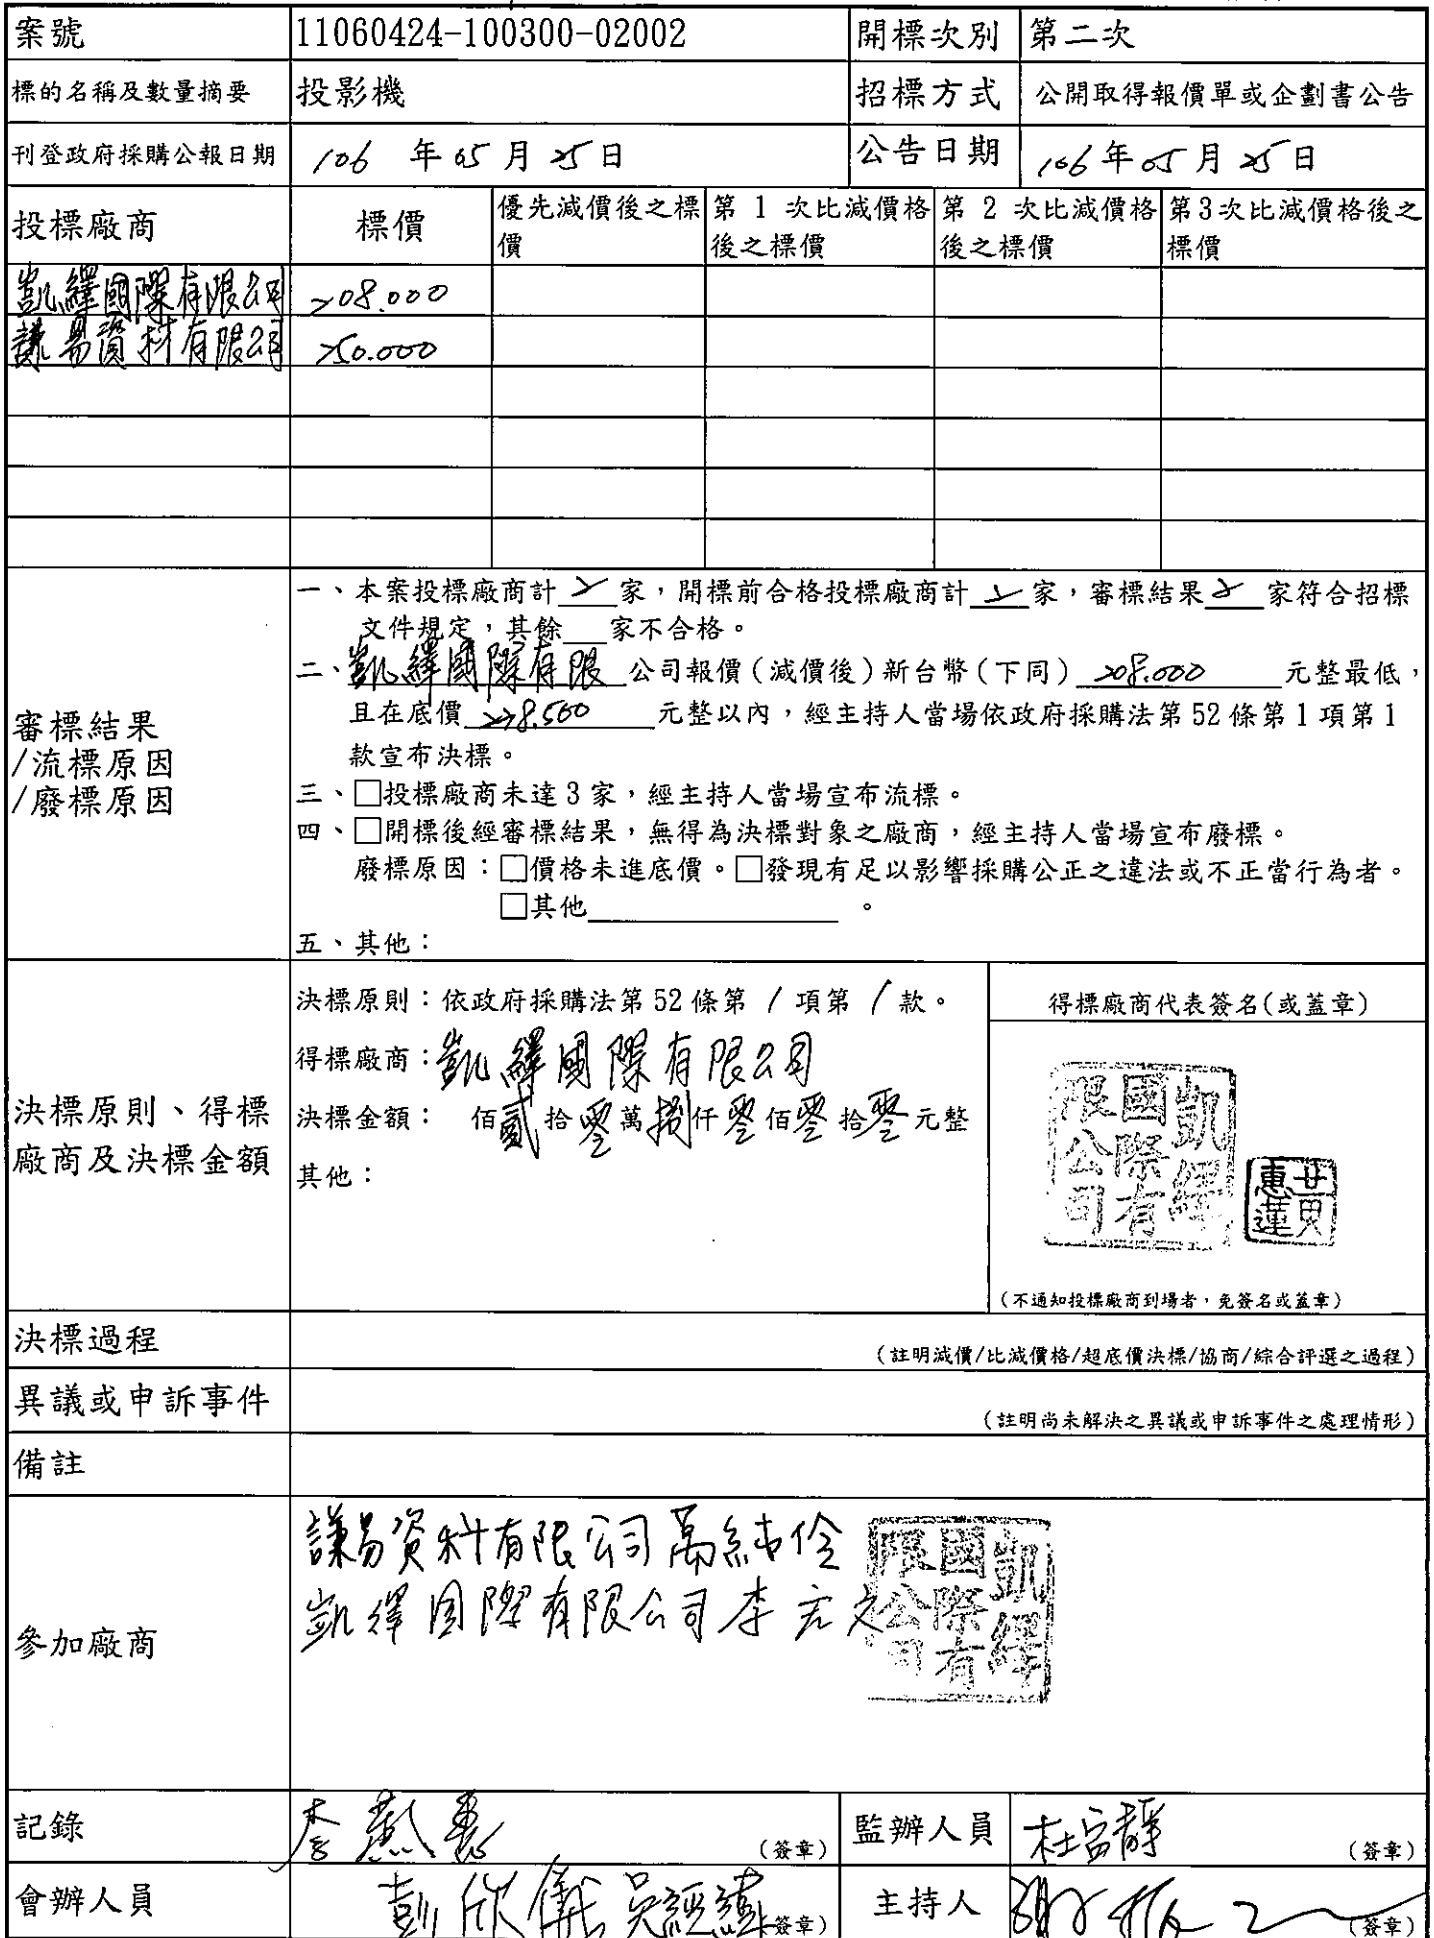 案號 11060424-100300-02002 開標次別 第二次
標的名稱及數量摘要 投影機 招標方式 公開取得報價單或企劃書公告
刊登政府採購公報日期 106 年 05 月 25 日 公告日期 106 年 05 月 25 日
投標廠商 標價 優先減價後之標價 第 1 次比減價格後之標價 第 2 次比減價格後之標價 第3次比減價格後之標價
凱繹國際有限公司 208.000
謙易資材有限公司 250.000
審標結果
/流標原因
/廢標原因
一、本案投標廠商計 2 家，開標前合格投標廠商計 2 家，審標結果 2 家符合招標
文件規定，其餘 家不合格。
二、凱繹國際有限 公司報價(減價後)新台幣(下同) 208.000 元整最低，
且在底價 228.500 元整以內，經主持人當場依政府採購法第 52 條第 1 項第 1
款宣布決標。
三、□投標廠商未達 3 家，經主持人當場宣布流標。
四、□開標後經審標結果，無得為決標對象之廠商，經主持人當場宣布廢標。
廢標原因：□價格未進底價。□發現有足以影響採購公正之違法或不正當行為者。
□其他 。
五、其他：
決標原則、得標
廠商及決標金額
決標原則：依政府採購法第 52 條第 1 項第 1 款。
得標廠商：凱繹國際有限公司
決標金額： 佰貳拾零萬捌仟零佰零拾零元整
其他：
得標廠商代表簽名(或蓋章)
凱繹國際有限公司
(不通知投標廠商到場者，免簽名或蓋章)
決標過程 (註明減價/比減價格/超底價決標/協商/綜合評選之過程)
異議或申訴事件 (註明尚未解決之異議或申訴事件之處理情形)
備註
參加廠商
謙易資材有限公司
凱繹國際有限公司 李宏文
凱繹國際有限公司
記錄 (簽章) 監辦人員 (簽章)
會辦人員 彭欣儀 (簽章) 主持人 (簽章)